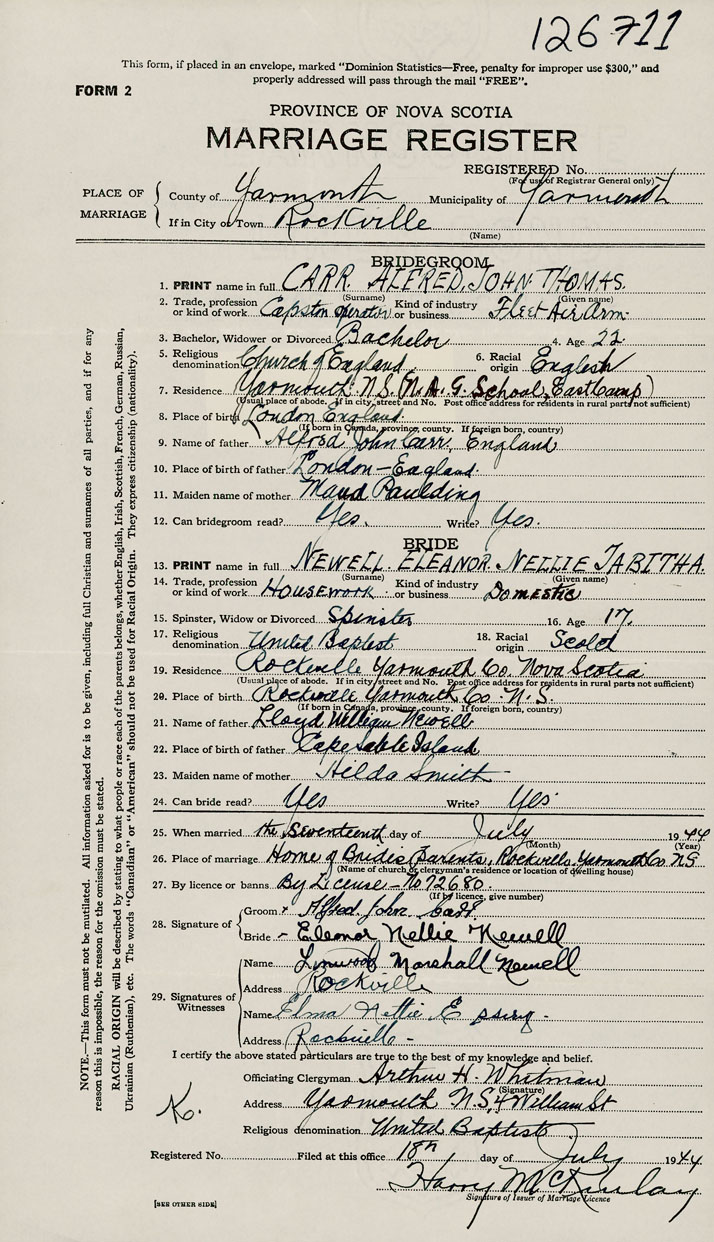 126711
This form, if placed in an envelope, marked "Dominion Statistics—Free, penalty for improper use $300," and
properly addressed will pass through the mail "FREE".
FORM 2
PROVINCE OF NOVA SCOTIA
MARRIAGE REGISTER
REGISTERED No.
(For use of Registrar General only)
PLACE OF MARRIAGE
County of Yarmouth Municipality of Yarmouth
If in City or Town Rockville
(Name)
BRIDEGROOM
1. PRINT name in full CARR. ALFRED, JOHN THOMAS.
(Surname) (Given name)
2. Trade, profession or kind of work Capston operator Kind of industry or business Fleet Air Arm.
3. Bachelor, Widower or Divorced Bachelor 4. Age 22
5. Religious denomination Church of England 6. Racial origin English
7. Residence Yarmouth N.S. (N.A.G. School, East Camp)
(Usual place of abode. If in city, street and No. Post office address for residents in rural parts not sufficient)
8. Place of birth London England.
(If born in Canada, province, county. If foreign born, country)
9. Name of father Alfred John Carr, England
10. Place of birth of father London - England.
11. Maiden name of mother Maud Paulding
12. Can bridegroom read? Yes. Write? Yes.
BRIDE
13. PRINT name in full NEWELL. ELEANOR. NELLIE TABITHA.
(Surname) (Given name)
14. Trade, profession or kind of work HOUSEWORK Kind of industry or business DOMESTIC
15. Spinster, Widow or Divorced Spinster 16. Age 17.
17. Religious denomination United Baptist 18. Racial origin Scold
19. Residence Rockville Yarmouth Co. Nova Scotia
(Usual place of abode. If in city, street and No. Post office address for residents in rural parts not sufficient)
20. Place of birth Rockville Yarmouth Co. N.S.
(If born in Canada, province, county. If foreign born, country)
21. Name of father Lloyd William Newell
22. Place of birth of father Cape Sable Island
23. Maiden name of mother Hilda Smith
24. Can bride read? Yes Write? Yes
25. When married the Seventeenth day of July 1944
(Month) (Year)
26. Place of marriage Home of Brides parents, Rockville, Yarmouth Co. N.S
(Name of church or clergyman's residence or location of dwelling house)
27. By licence or banns By License - No 72680.
(If by licence, give number)
28. Signature of
Groom x Alfred John Carr.
Bride - Eleanor Nellie Newell
29. Signatures of Witnesses
Name Linwood Marshall Newell
Address Rockville
Name Elma Nettie
Address Rockville -
I certify the above stated particulars are true to the best of my knowledge and belief.
Officiating Clergyman Arthur H. Whitman
(Signature)
Address Yarmouth N.S, 4 William St
Religious denomination United Baptist
K.
Registered No. Filed at this office 18th day of July 1944
Harry McKinlay
Signature of Issuer of Marriage Licence
[SEE OTHER SIDE]
NOTE.—This form must not be mutilated. All information asked for is to be given, including full Christian and surnames of all parties, and if for any
reason this is impossible, the reason for the omission must be stated.
RACIAL ORIGIN will be described by stating to what people or race each of the parents belongs, whether English, Irish, Scottish, French, German, Russian,
Ukrainian (Ruthenian), etc. The words "Canadian" or "American" should not be used for Racial Origin. They express citizenship (nationality).